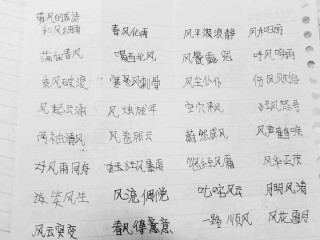 带风的成语
和风细雨 春风化雨 风平浪静 风和日丽
满面春风 喝西北风 风餐露宿 呼风唤雨
乘风破浪 寒风刺骨 风尘仆仆 伤风败俗
风起云涌 风烛残年 空穴来风 狂风怒号
两袖清风 风卷残云 蔚然成风 风声鹤唳
好风雨同舟 狂风暴雨 饱经风霜 风华正茂
谈笑风生 风流倜傥 叱咤风云 月明风清
风云突变 春风得意 一路顺风 风花雪月